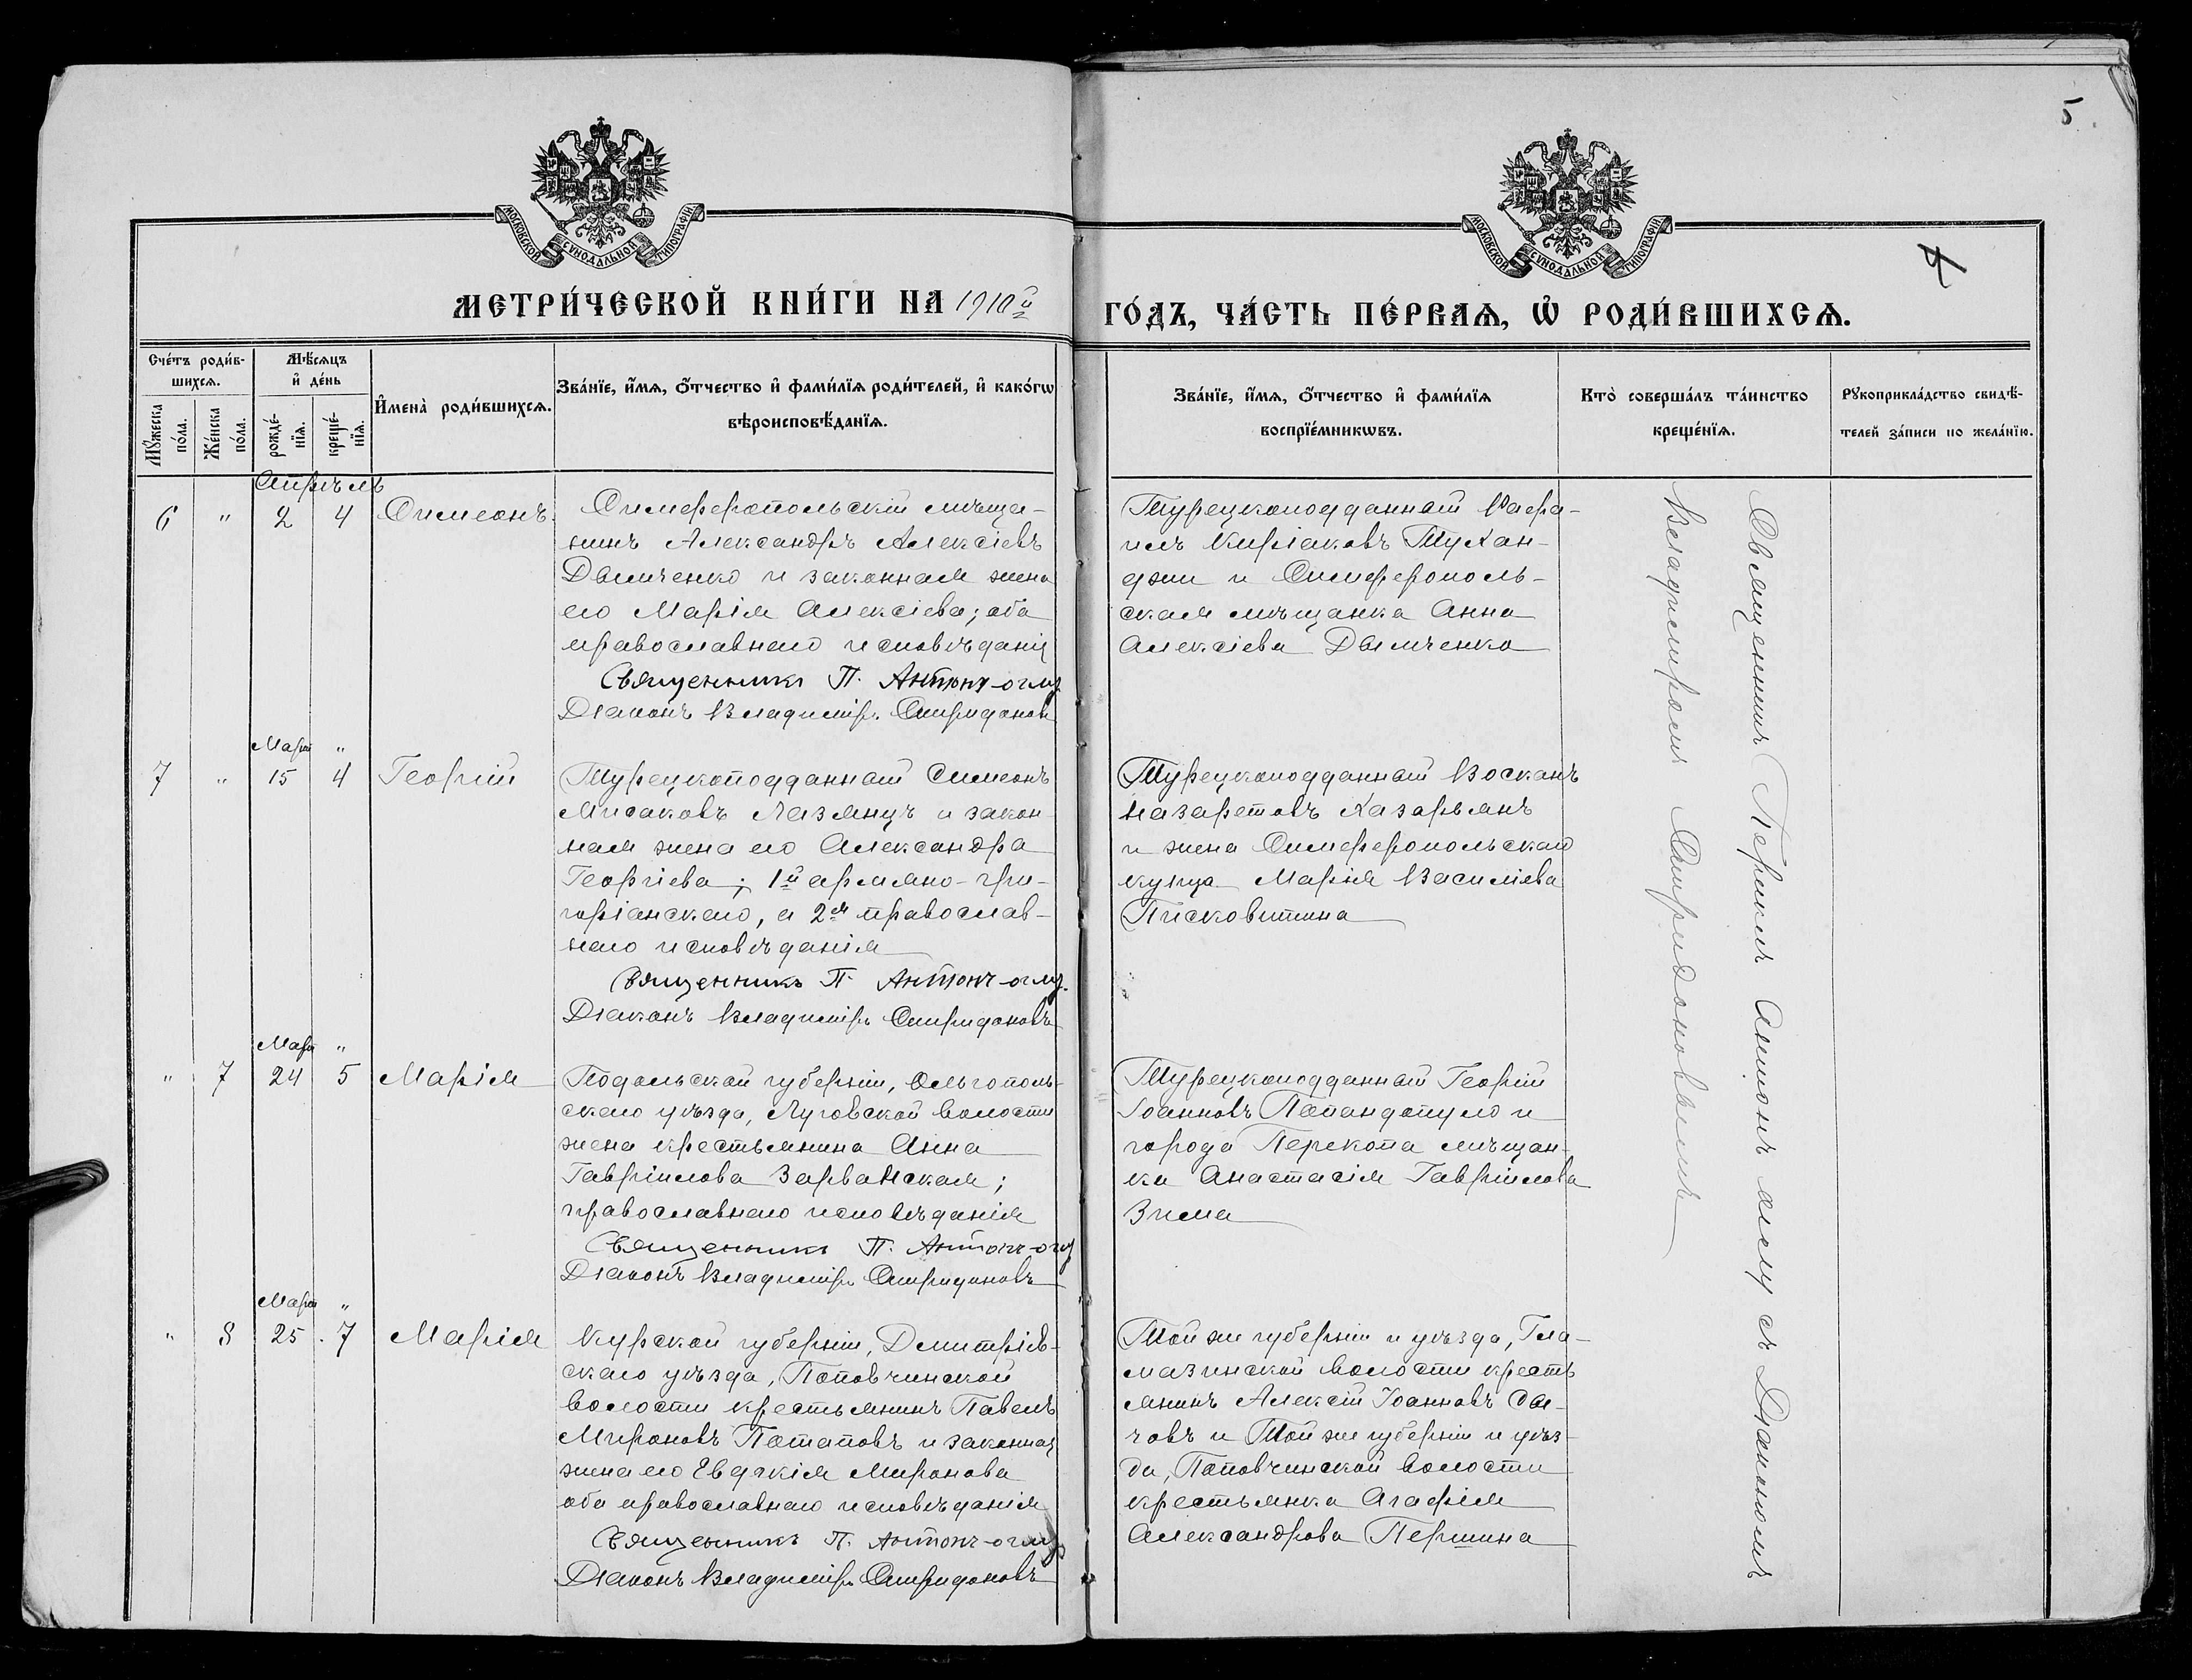 5
МОСКОВСКОЙ СѴНОДАЛЬНОЙ ТИПОГРАФІИ.
МОСКОВСКОЙ СѴНОДАЛЬНОЙ ТИПОГРАФІИ.
4
МЕТРИ́ЧЕСКОЙ КНИ́ГИ НА 1910й
ГО́ДЪ, ЧА́СТЬ ПЕ́РВАѦ, Ѡ҆ РОДИ́ВШИХСѦ.
Сче́тъ роди́в-
шихсѧ.
Мѹ́жеска
по́ла.
Же́нска
по́ла.
Мѣ́сѧцъ
и҆ де́нь
рожде́-
нїѧ.
креще́-
нїѧ.
И҆мена̀ роди́вшихсѧ.
Зва́нїе, и҆́мѧ, ѻ҆́тчество и҆ фами́лїѧ роди́телей, и҆ како́гѡ
вѣроисповѣ́данїѧ.
Зва́нїе, и҆́мѧ, ѻ҆́тчество и҆ фами́лїѧ
воспрїе́мникѡвъ.
Кто̀ соверша́лъ та́инство
креще́нїѧ.
Рѹкоприкла́дство свидѣ́-
телей за́писи по жела́нїю.
Апрѣль
6 " 2 4 Симеонъ.
Симферопольскій мѣща-
нинъ Александръ Алексіевъ
Дымченко и законная жена
его Марія Алексіева; оба
православнаго исповѣданія
Священникъ П. Антонъ-оглу.
Діаконъ Владиміръ Спиридоновъ
Турецкоподданный
Киріаковъ
и Симферополь-
ская мѣщанка Анна
Алексіева Дымченко
Март "
7 " 15 4 Георгій
Турецкоподданный Симеонъ
Мисаковъ Лазянцъ и закон-
ная жена его Александра
Георгіева; 1й армяно-гри-
горіанскаго, а 2ая православ-
наго исповѣданія
Священникъ П. Антонъ-оглу.
Діаконъ Владиміръ Спиридоновъ
Турецкоподданный Восканъ
Назаретовъ Казарьянъ
и жена Симферопольскаго
купца Марія Василіева
Писковитина
Март "
" 7 24 5 Марія
Подольской губерніи, Ольгополь-
скаго уѣзда, Луговской волости
жена крестьянина Анна
Гавріилова Зарванская;
православнаго исповѣданія
Священникъ П. Антонъ-оглу
Діаконъ Владиміръ Спиридоновъ
Турецкоподданный Георгій
Іоанновъ Папандопуло и
города Перекопа мѣщан-
ка Анастасія Гавріилова
Зима
Март "
" 8 25 7 Марія
Курской губерніи, Дмитріев-
скаго уѣзда, Поповчинской
волости крестьянинъ Павелъ
Мироновъ Потаповъ и законная
жена его Евдокія Миронова
оба православнаго исповѣданія
Священникъ П. Антонъ-оглу
Діаконъ Владиміръ Спиридоновъ
Той же губерніи и уѣзда, Гла-
мазинской волости кресть-
янинъ Алексій Іоанновъ
и Той же губерніи и уѣз-
да, Поповчинской волости
крестьянка Агафія
Александрова Першина
Священникъ Периклъ Антонъ-оглу съ Діакономъ
Владиміромъ Спиридоновымъ